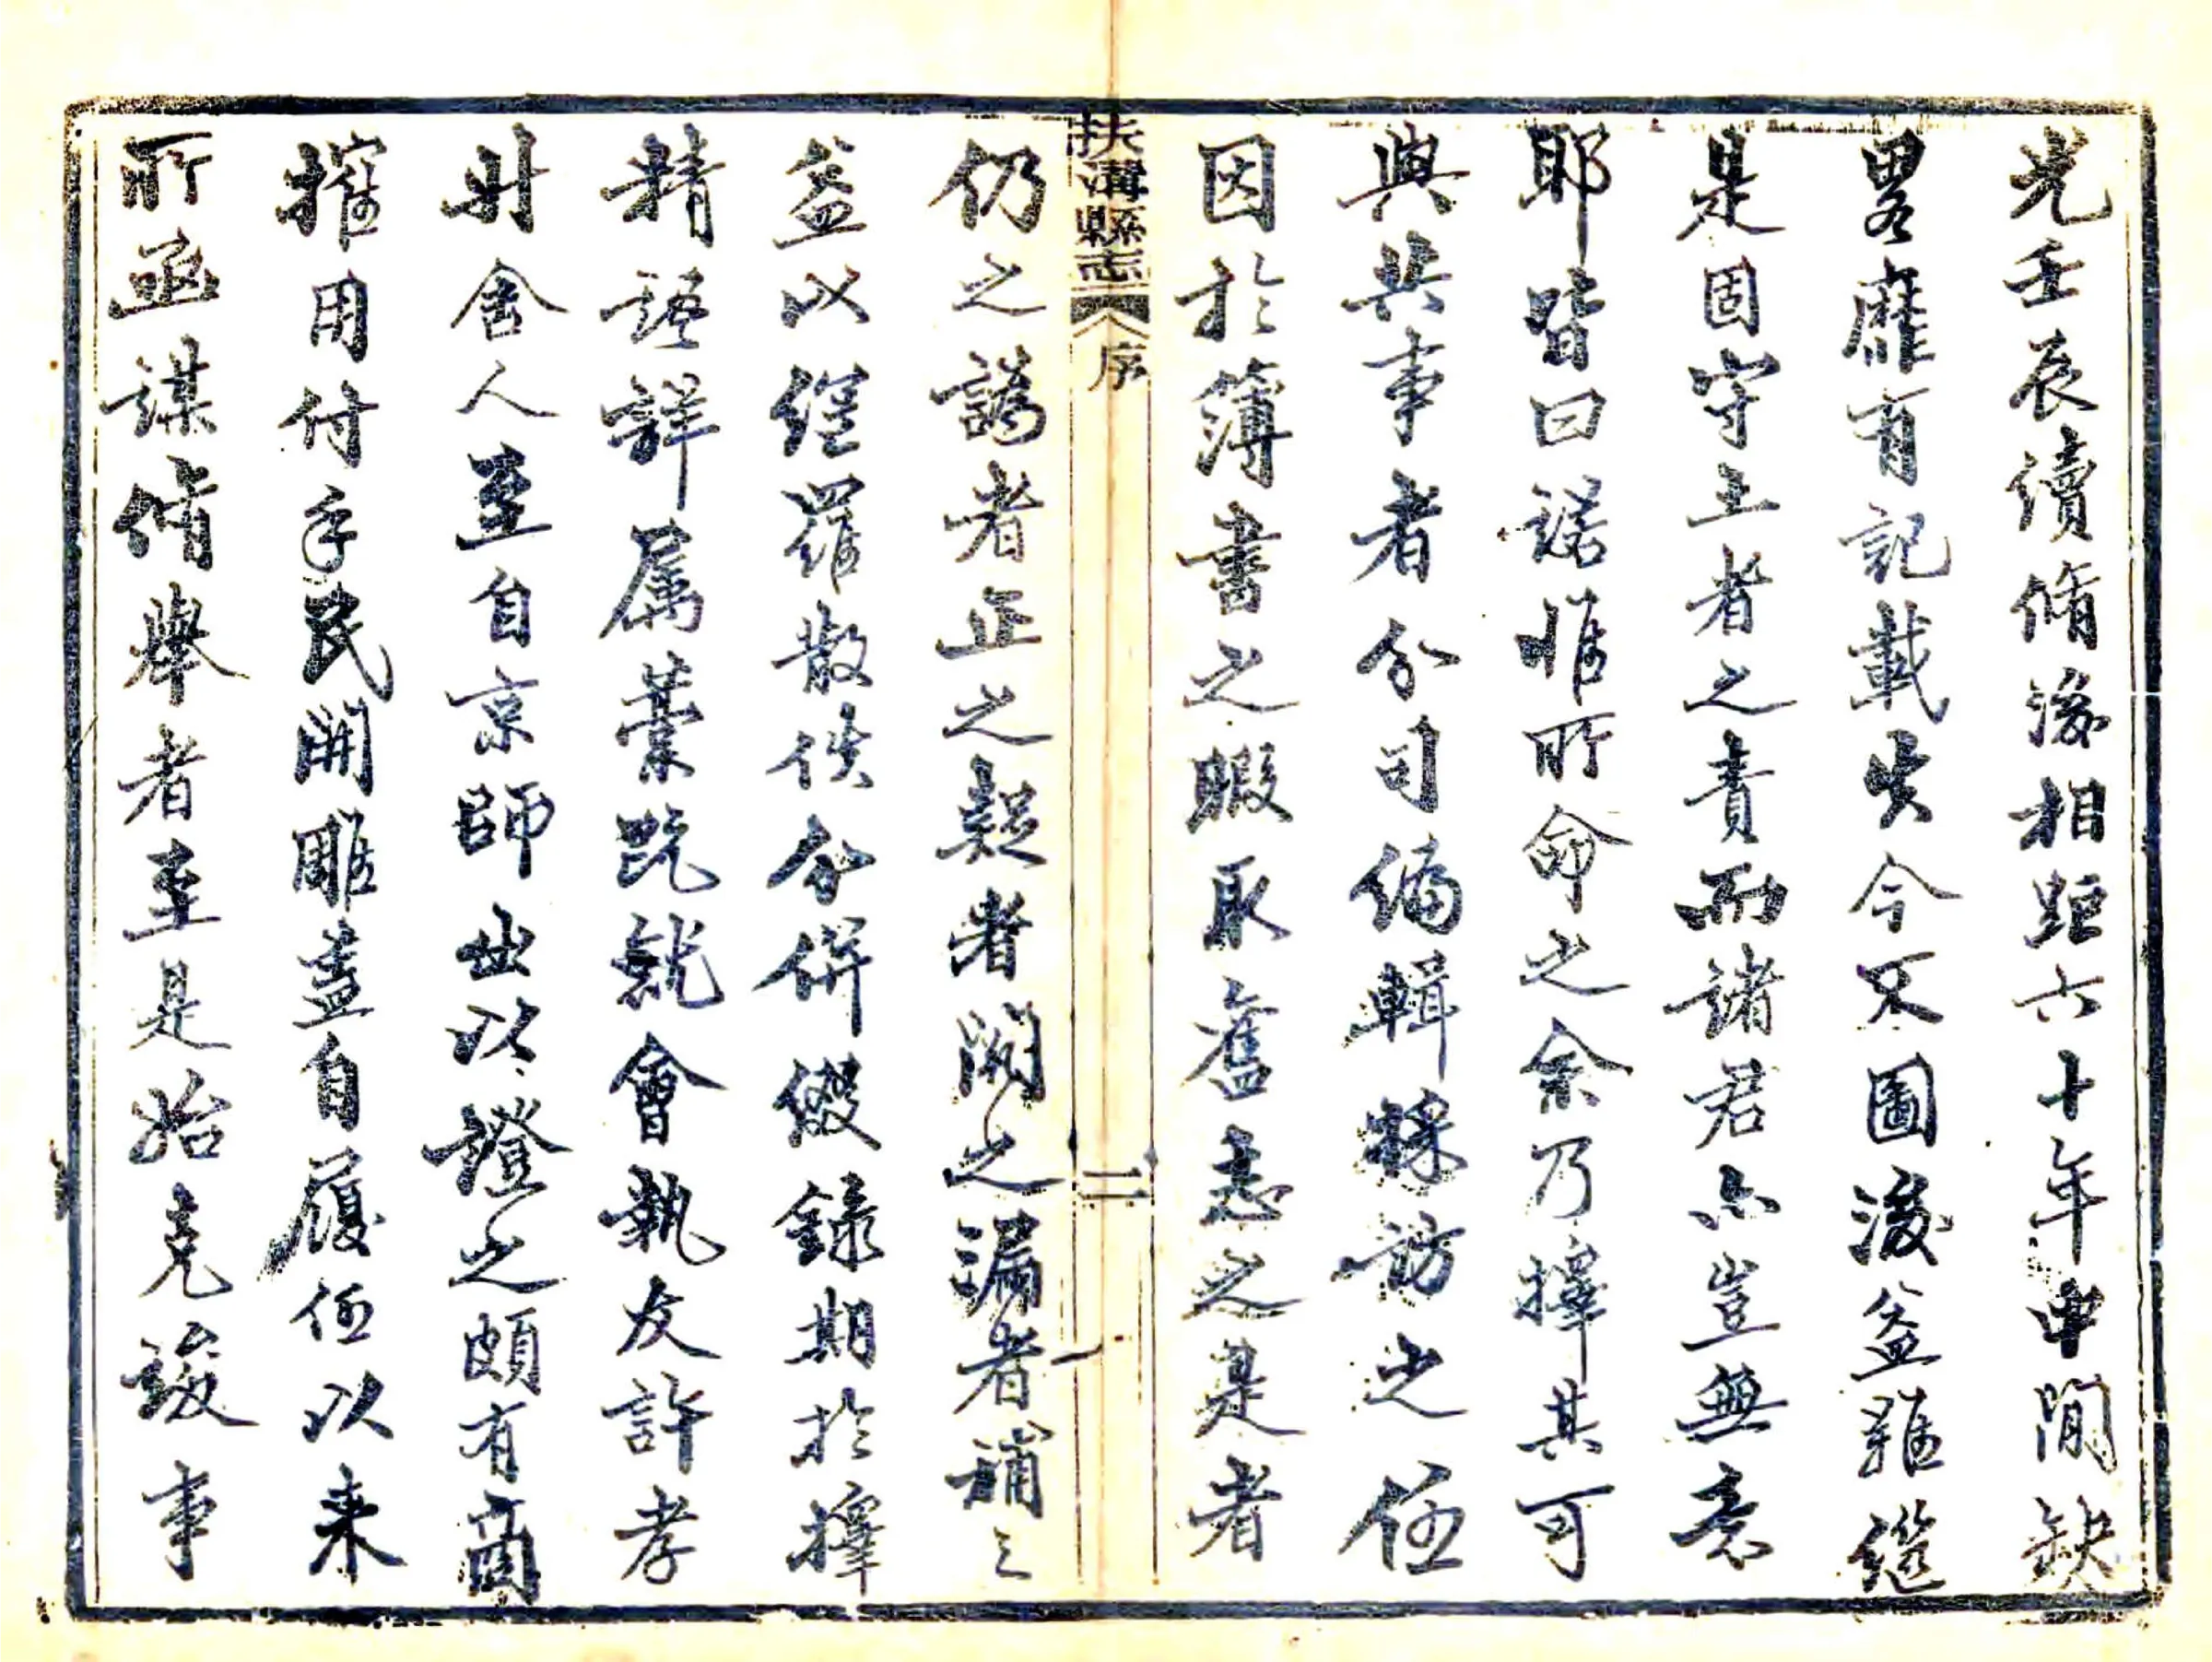 光壬辰續脩後相距六十年中間缺
畧靡有記載失今不圖後益難繼
是固守土者之責而諸君亦豈無意
耶皆曰諾惟所命之余乃擇其可
與共事者分司編輯採訪之任
因於簿書之暇取舊志之是者
扶溝縣志 序 二
仍之譌者正之疑者闕之漏者補之
益以經羅散佚分併綴錄期於擇
精語詳属藁既就會執友許孝
舍人至自京師出以證之頗有商
搉用付手民開雕蓋自履任以来
所亟謀脩舉者至是始克竣事